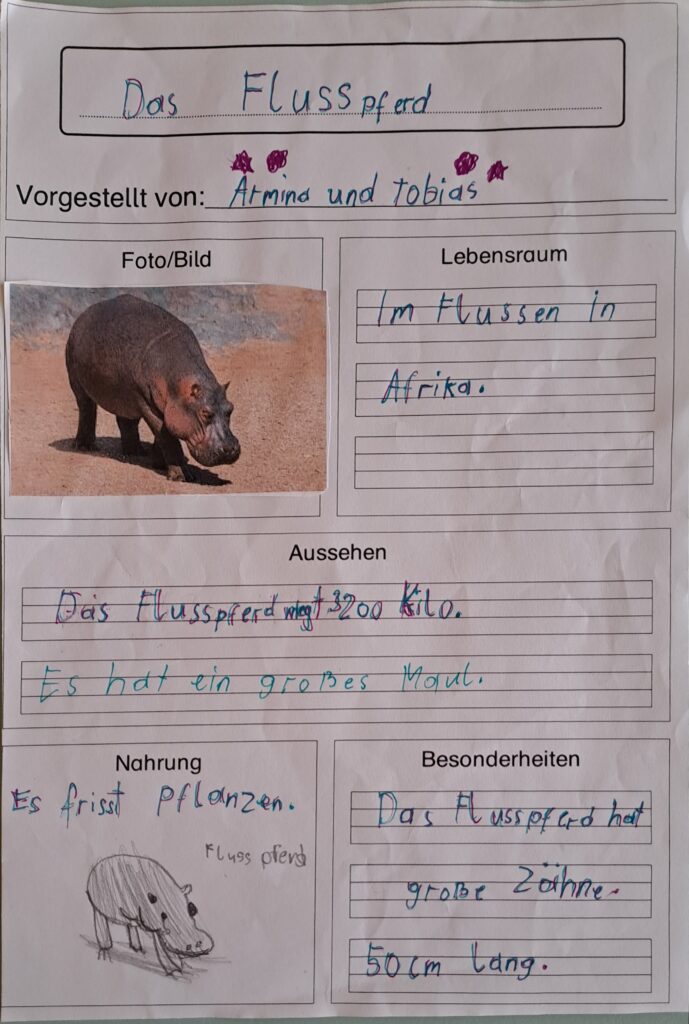 Das Flusspferd
Vorgestellt von: Armina und tobias
Foto/Bild
Lebensraum
Im Flussen in
Afrika.
Aussehen
Das Flusspferd wiegt 3200 Kilo.
Es hat ein großes Maul.
Nahrung
Es frisst pflanzen.
Fluss pferd
Besonderheiten
Das Flusspferd hat
große Zähne.
50cm lang.